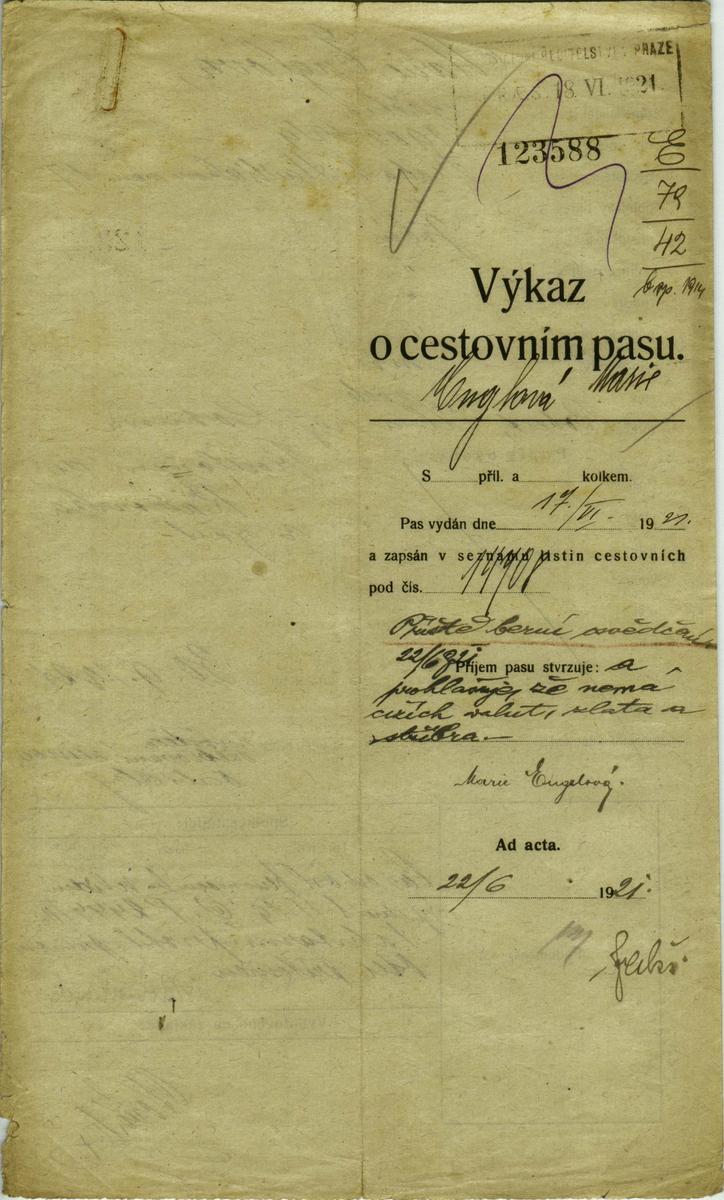 ŘEDITELSTVÍ V PRAZE
18. VI. 1921
123588
E
79
42
1914
Výkaz
o cestovním pasu.
Englová Marie
S příl. a kolkem.
Pas vydán dne 17/VI. 1921.
a zapsán v seznamu listin cestovních
pod čís.
Příště berní osvědčení
22/6 921 Příjem pasu stvrzuje: a
prohlašuje, že nemá
cizích valut, zlata a
stříbra.—
Marie Engelová.
Ad acta.
22/6 1921.